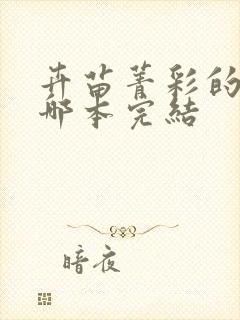 卉苗菁彩的
哪本完結
暗夜